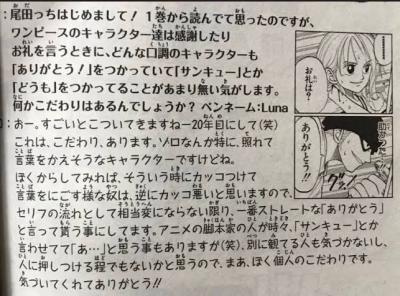 ：尾田っちはじめまして！１巻から読んでて思ったのですが、
ワンピースのキャラクター達は感謝したり
お礼を言うときに、どんな口調のキャラクターも
「ありがとう！」をつかっていて「サンキュー」とか
「どうも」をつかってることがあまり無い気がします。
何かこだわりはあるんでしょうか？ ペンネーム：Luna
：おー。すごいとこついてきますねー20年目にして(笑)
これは、こだわり、あります。ゾロなんか特に、照れて
言葉をかえそうなキャラクターですけどね。
ぼくからしてみれば、そういう時にカッコつけて
言葉をにごす様な奴は、逆にカッコ悪いと思いますので、
セリフの流れとして相当変にならない限り、一番ストレートな「ありがとう」
と言って貰う事にしてます。アニメの脚本家の人が時々、「サンキュー」とか
言わせてて「あ…」と思う事もありますが(笑)、別に観てる人も気づかないし、
人に押しつける程でもないかと思うので、まあ、ぼく個人のこだわりです。
気づいてくれてありがとう!!
お礼は？
助かった
ありがとう!!